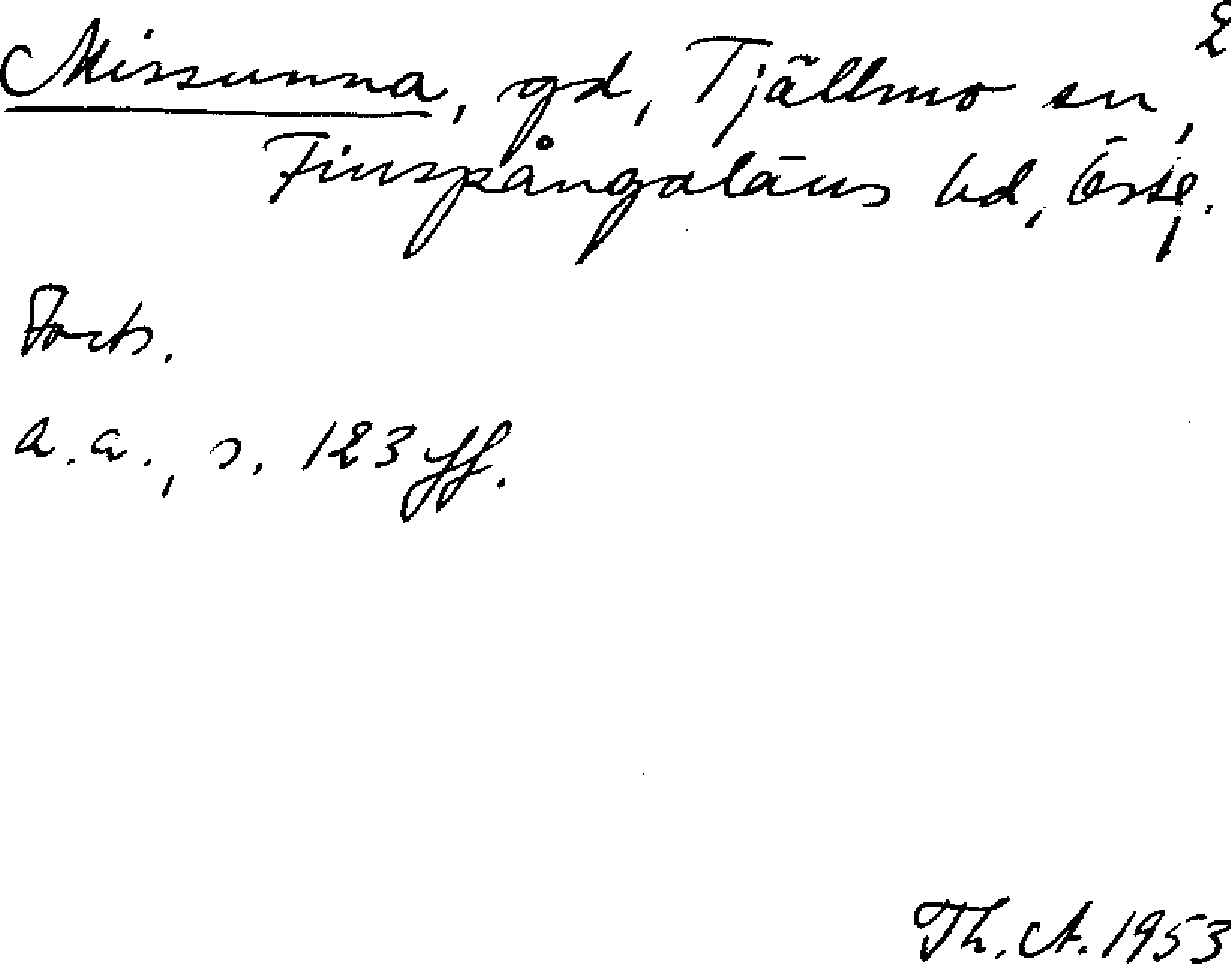 2
Missunna, gd, Tjällmo sn,
Finspångaläns hd, Östg.
Forts.
a.a., s. 123 ff.
Th. A. 1953